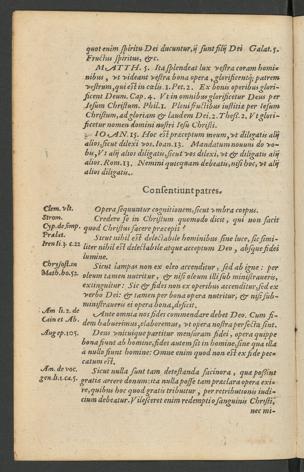 quot enim spiritu Dei ducuntur, ij sunt filij Dei Galat. 5.
Fructus spiritus, &c.
MATTH. 5. Ita splendeat lux vestra coram homi-
nibus, vt videant vestra bona opera, glorificentq; patrem
vestrum, qui est in cælis 1. Pet. 2. Ex bonis operibus glori-
ficent Deum. Cap. 4. Vt in omnibus glorificetur Deus per
Iesum Christum. Phil. 1. Pleni fructibus iustitiæ per Iesum
Christum, ad gloriam & laudem Dei. 2. Thess. 2. Vt glori-
ficetur nomen domini nostri Iesu Christi.
IOAN. 15. Hoc est præceptum meum, vt diligatis alij
alios, sicut dilexi vos. Ioan. 13. Mandatum nouum do vo-
bis, Vt alij alios diligatis, sicut vos dilexi, vt & diligatis alij
alios. Rom. 13. Nemini quicquam debeatis, nisi hoc, vt alij
alios diligatis.
Consentiunt patres.
Clem. vlt.
Strom.
Opera sequuntur cognitionem, sicut vmbra corpus.
Cyp. de simp.
Prælat.
Credere se in Christum quomodo dicit, qui non facit
quod Christus facere præcepit?
Iren li. 3. c. 22
Sicut nihil est delectabile hominibus sine luce, sic simi-
liter nihil est delectabile atque acceptum Deo, absque fidei
lumine.
Chrysost. in
Math. ho. 52.
Sicut lampas non ex oleo accenditur, sed ab igne: per
oleum tamen nutritur, & nisi oleum illi subministraueris,
extinguitur: Sic & fides non ex operibus accenditur, sed ex
verbo Dei: & tamen per bona opera nutritur, & nisi sub-
ministraueris ei opera bona, deficit.
Am li. 2. de
Cain et Ab.
Ante omnia nos fides commendare debet Deo. Cum fi-
dem habuerimus, elaboremus, vt opera nostra perfecta sint.
Aug ep. 105.
Deus vnicuique partitur mensuram fidei, opera quippe
bona fiunt ab homine, fides autem fit in homine, sine qua illa
à nullo fiunt homine: Omne enim quod non est ex fide pec-
catum est.
Am. de voc.
gen. li. 1. ca. 5.
Sicut nulla sunt tam detestanda facinora, quæ possint
gratiæ arcere donum: ita nulla posse tam præclara opera exi-
re, quibus hoc quod gratis tribuitur, per retributionis iudi-
cium debeatur. Vilesceret enim redemptio sanguinis Christi,
nec mi-